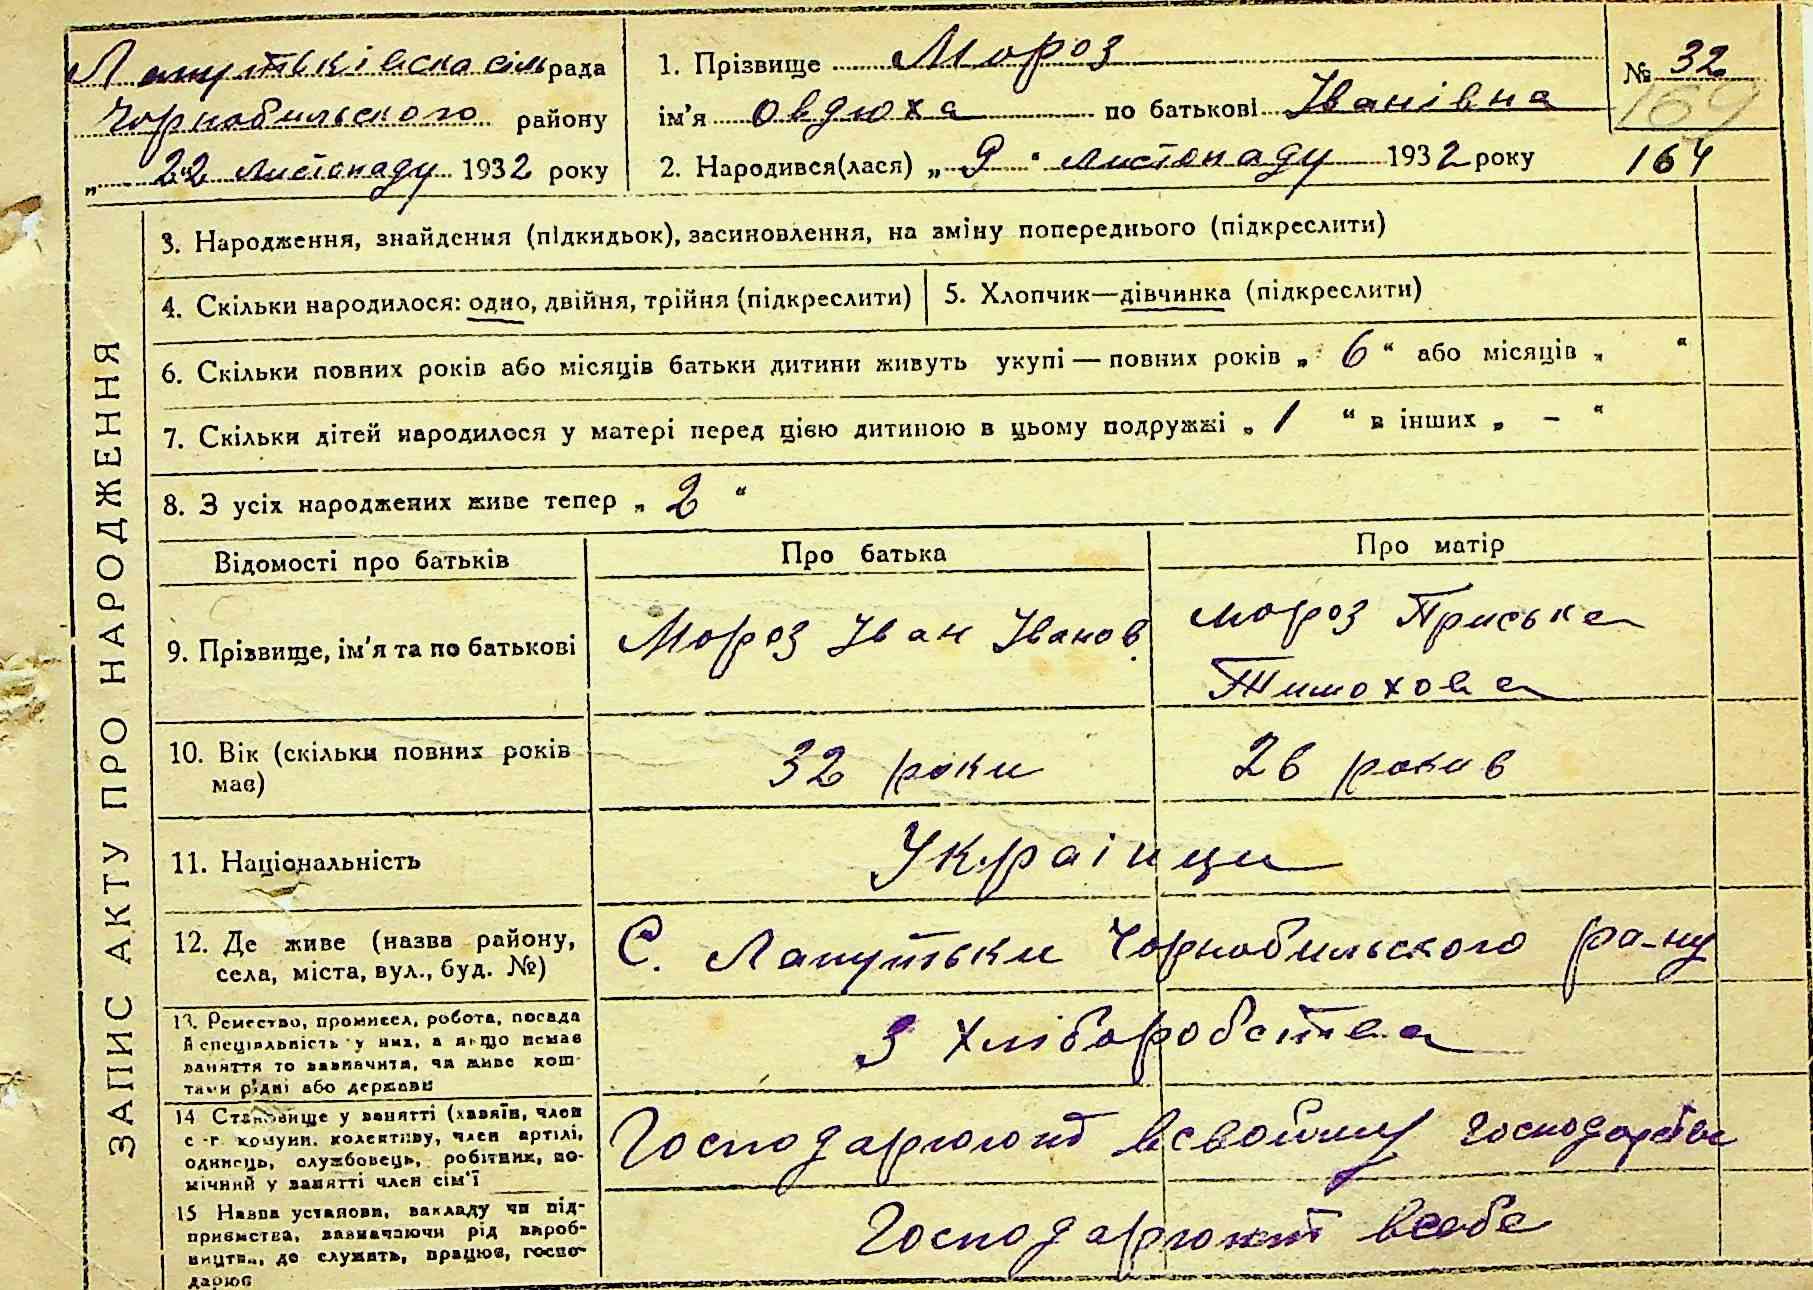 Лапутьківська сільрада
Чорнобильського району
„ 22 " листопаду 1932 року
1. Прізвище Мороз
ім'я Овдюха по батькові Іванівна
2. Народився(лася) „ 9 " листопаду 1932 року
№ 32
169
164
ЗАПИС АКТУ ПРО НАРОДЖЕННЯ
3. Народження, знайдення (підкидьок), засиновлення, на зміну попереднього (підкреслити)
4. Скільки народилося: одно, двійня, трійня (підкреслити)
5. Хлопчик—дівчинка (підкреслити)
6. Скільки повних років або місяців батьки дитини живуть укупі — повних років „ 6 “ або місяців „ “
7. Скільки дітей народилося у матері перед цією дитиною в цьому подружжі „ 1 “ в інших „ - “
8. З усіх народжених живе тепер „ 2 “
Відомості про батьків
Про батька
Про матір
9. Прізвище, ім'я та по батькові
Мороз Іван Іванов.
Мороз Приська
Тимохова
10. Вік (скільки повних років
має)
32 роки
26 рокив
11. Національність
Українци
12. Де живе (назва району,
села, міста, вул., буд. №)
С. Лапутьки Чорнобильского ра-ну
13. Ремество, промисел, робота, посада
й спеціяльність у них, а якщо немає
заняття то зазначити, чи живе кош-
тами рідні або держави
З хліборобства
14 Становище у занятті (хазяїн, член
с.-г. комуни, колективу, член артілі,
одинець, службовець, робітник, по-
мічний у занятті член сім'ї
Господарюют всвойому господарстві
15 Назва установи, закладу чи під-
приємства, зазначаючи рід вироб-
ництва, де служить, працює, госпо-
дарює
Господарюют всебе